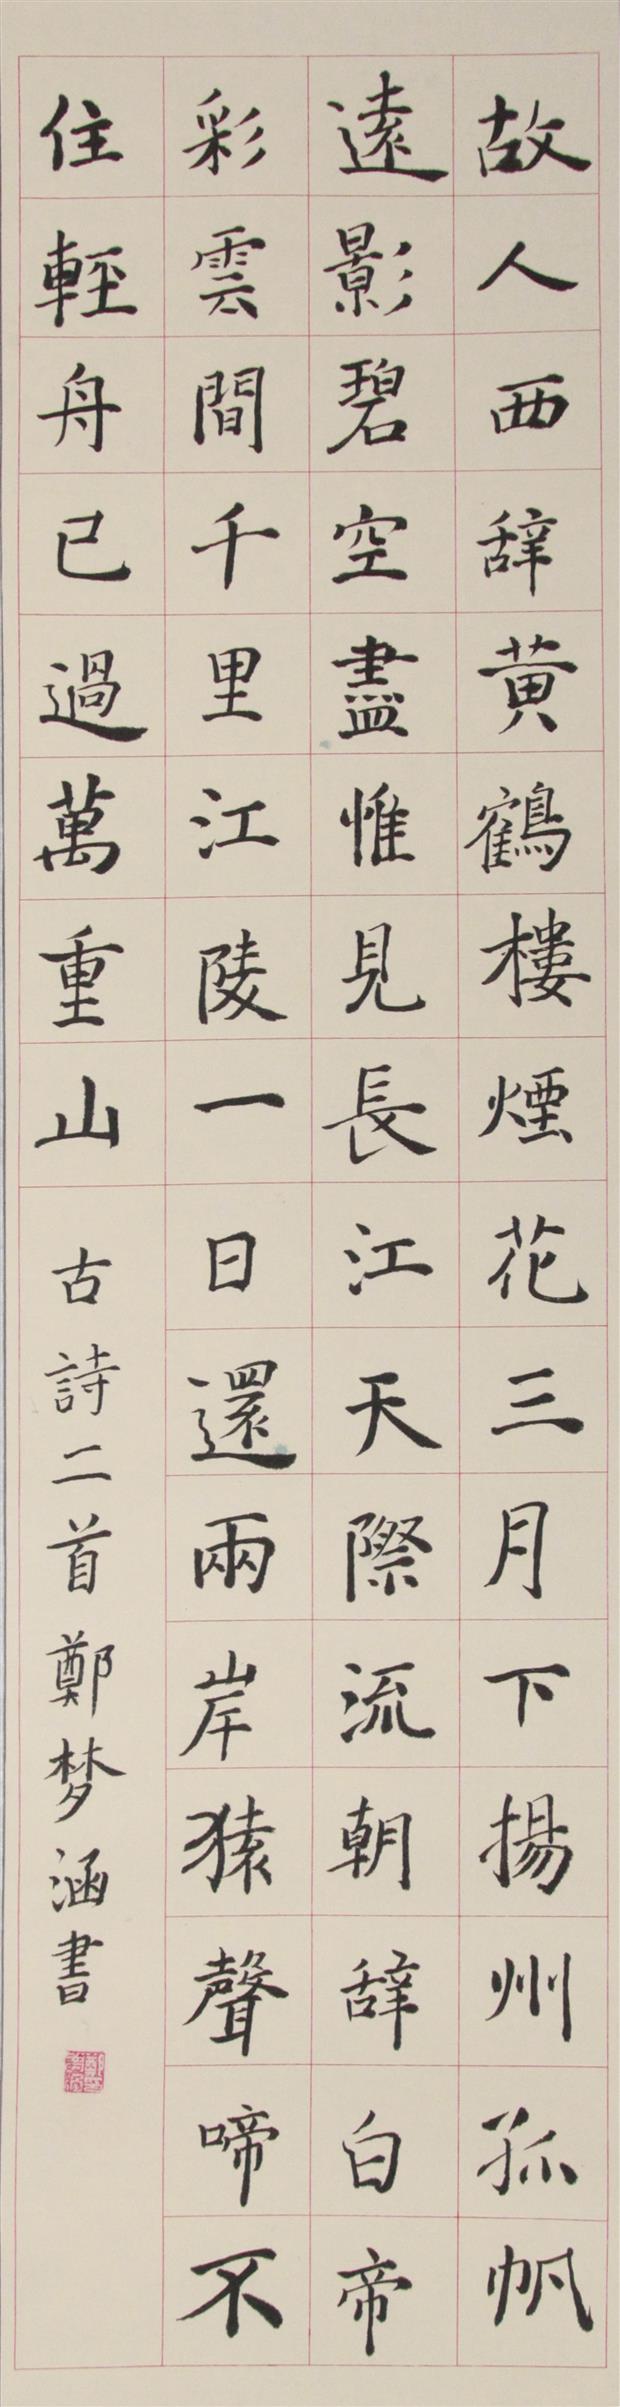 故人西辞黄鶴樓煙花三月下揚州孤帆
遠影碧空盡惟見長江天際流朝辞白帝
彩雲間千里江陵一日還兩岸猿聲啼不
住輕舟已過萬重山 古詩二首鄭梦涵書